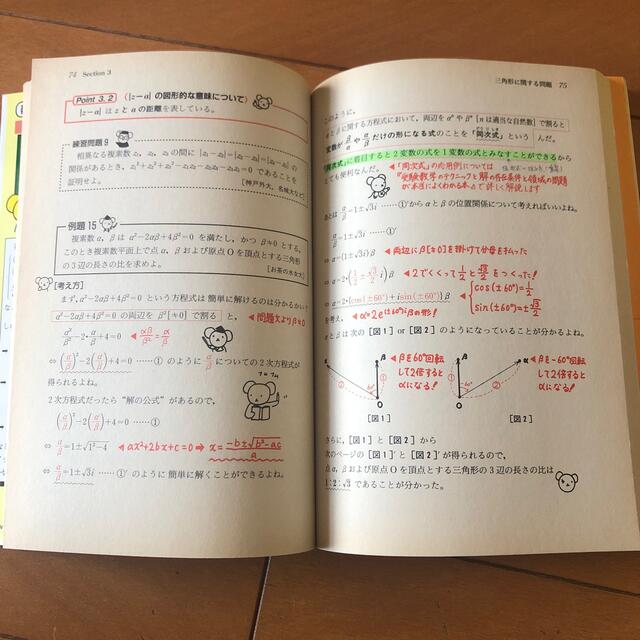 74 Section 3
Point 3.2 (|z-α| の図形的な意味について)
|z-α| は z と α の距離を表している。
練習問題 9
相異なる複素数 z₁, z₂, z₃ の間に |z₁-z₂|=|z₂-z₃|=|z₃-z₁| の
関係があるとき, z₁²+z₂²+z₃²-z₁z₂-z₂z₃-z₃z₁=0 であることを
証明せよ。
[神戸外大, 名城大など]
例題 15
複素数 α, β は α²-2αβ+4β²=0 を満たし, かつ β≠0 とする。
このとき複素数平面上で点 α, β および原点 O を頂点とする三角形
の 3 辺の長さの比を求めよ。
[お茶の水女大]
[考え方]
まず, α²-2αβ+4β²=0 という方程式は簡単に解けるのは分かるかい?
α²-2αβ+4β²=0 の両辺を β²[≠0] で割る と, ◀ 問題文よりβ≠0
α²/β²-2・α/β+4=0 ◀ αβ/β²=α/β
⇔ (α/β)²-2(α/β)+4=0 ……① のように α/β についての2次方程式が
得られるよね。
2次方程式だったら “解の公式” があるので,
(α/β)²-2(α/β)+4=0 ……①
⇔ α/β=1±√1²-4 ◀ ax²+2bx+c=0 ⇒ x=-b±√b²-ac/a
⇔ α/β=1±√3i ……①′ のように 簡単に解くことができるよね。
三角形に関する問題 75
このように,
α と β に関する方程式において, 両辺を αⁿ や βⁿ [n は適当な自然数] で割ると
変数が β/α や α/β だけの形になる式のことを「同次式」というんだ。
「同次式」に着目すると2変数の式を1変数の式とみなすことができるから
とても便利なんだ。 ◀「同次式」の応用例については
『受験数学のテクニックと解の存在条件と領域の問題
が本当によくわかる本』で詳しく解説します
あとは α/β=1±√3i ……①′ から α と β の位置関係について考えればいいよね。
α/β=1±√3i ……①′
⇔ α=(1±√3i)β ◀ 両辺にβ[≠0]を掛けて分母を払った
⇔ α=2・(1/2±√3/2 i)β ◀ 2でくくって1/2と√3/2をつくった!
⇔ α=2・{cos(±60°)+isin(±60°)}β ◀ {cos(±60°)=1/2
sin(±60°)=±√3/2
を考え, ▲ α=2e^i(±60°)βの形!
α と β は次の [図1] or [図2] のようになっていることが分かるよね。
α β O 60° ② ①
◀ βを60°回転
して2倍すると
αになる!
β α O -60° ① ②
◀ βを-60°回転
して2倍すると
αになる!
[図1] [図2]
さらに, [図1] と [図2] から
次のページの [図1]′ と [図2]′ が得られるので,
点 α, β および原点 O を頂点とする三角形の 3 辺の長さの比は
1:2:√3 であることが分かった。